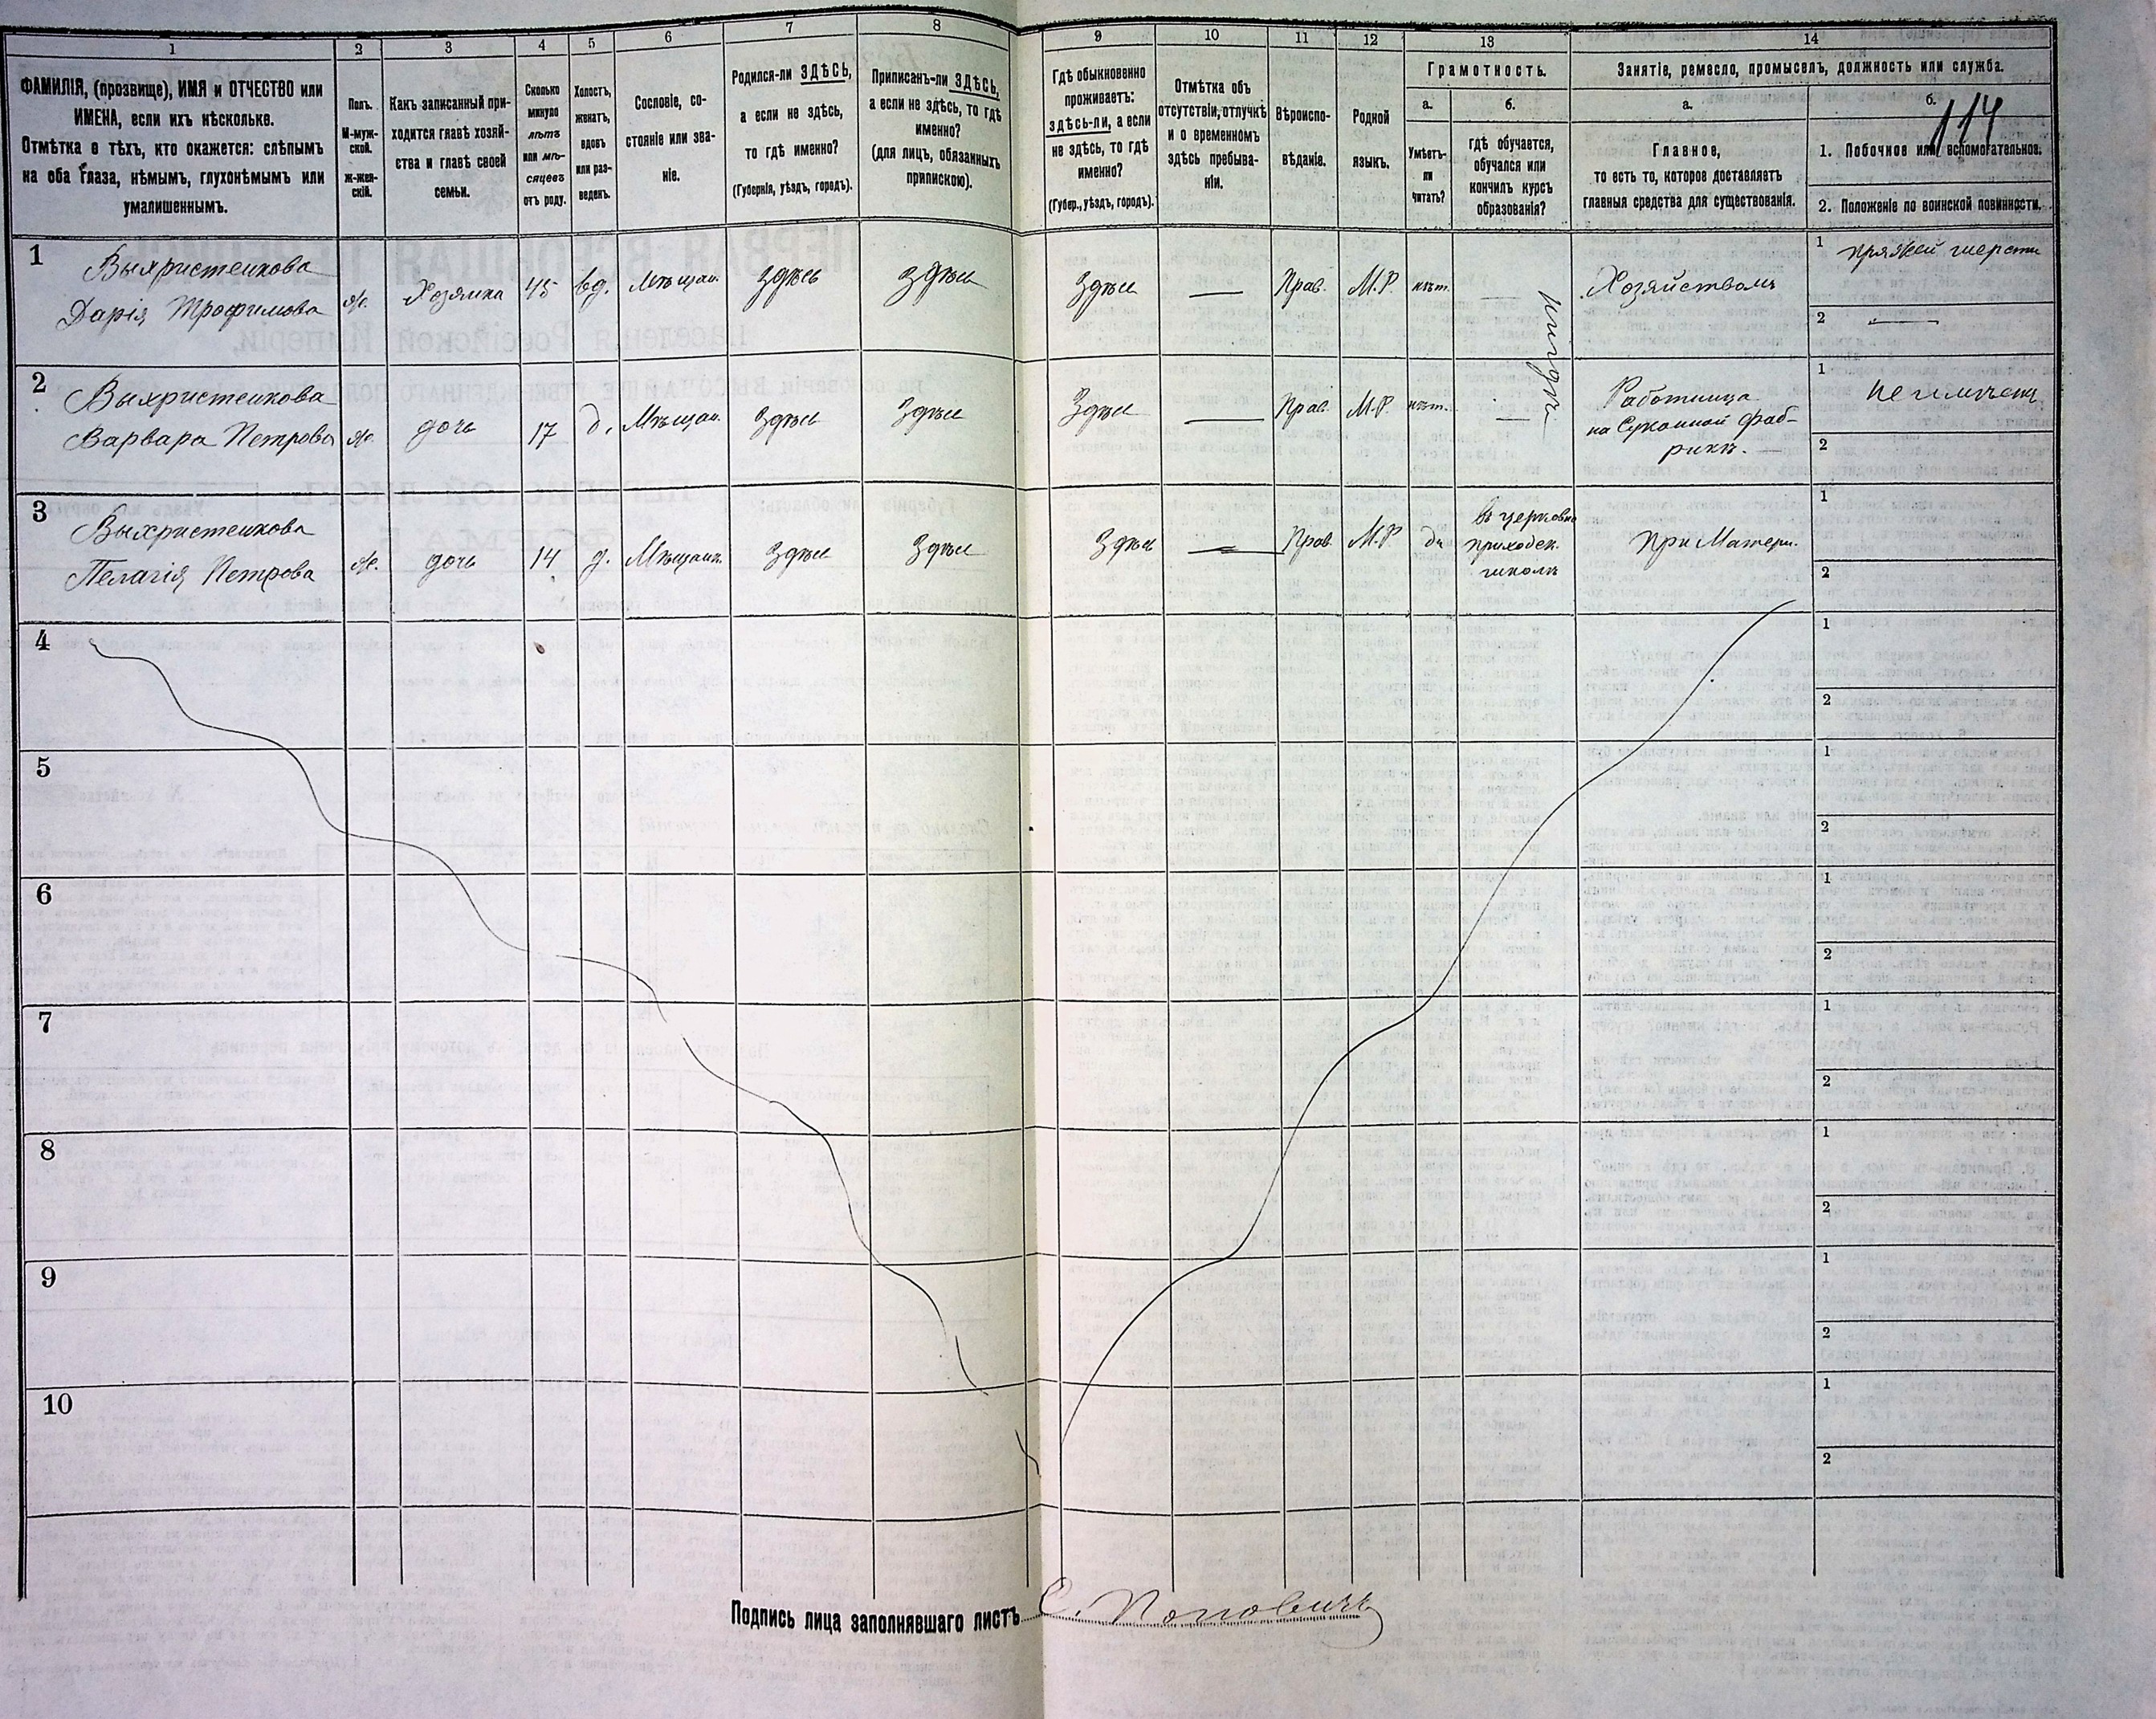 1 2 3 4 5 6 7 8 9 10 11 12 13 14
ФАМИЛІЯ, (прозвище), ИМЯ и ОТЧЕСТВО или
ИМЕНА, если ихъ нѣсколько.
Отмѣтка о тѣхъ, кто окажется: слѣпымъ
на оба глаза, нѣмымъ, глухонѣмымъ или
умалишеннымъ.
Полъ.
М-муж-
ской.
ж-жен-
скій.
Какъ записанный при-
ходится главѣ хозяй-
ства и главѣ своей
семьи.
Сколько
минуло
лѣтъ
или мѣ-
сяцевъ
отъ роду.
Холостъ,
женатъ,
вдовъ
или раз-
веденъ.
Сословіе, со-
стояніе или зва-
ніе.
Родился-ли ЗДѢСЬ,
а если не здѣсь,
то гдѣ именно?
(Губернія, уѣздъ, городъ).
Приписанъ-ли ЗДѢСЬ,
а если не здѣсь, то гдѣ
именно?
(для лицъ, обязанныхъ
припискою).
Гдѣ обыкновенно
проживаетъ:
здѣсь-ли, а если
не здѣсь, то гдѣ
именно?
(Губер., уѣздъ, городъ).
Отмѣтка объ
отсутствіи, отлучкѣ
и о временномъ
здѣсь пребыва-
ніи.
Вѣроиспо-
вѣданіе.
Родной
языкъ.
Грамотность.
а.
Умѣетъ-
ли
читать?
б.
гдѣ обучается,
обучался или
кончилъ курсъ
образованія?
Занятіе, ремесло, промыселъ, должность или служба.
а.
Главное,
то есть то, которое доставляетъ
главныя средства для существованія.
б.
114
1. Побочное или вспомогательное.
2. Положеніе по воинской повинности.
1
Выхристенкова
Дарія Трофимова
ж.
Хозяйка
45
вд.
Мѣщан.
Здѣсь
Здѣсь
Здѣсь
—
Прав.
М.Р.
нѣт.
—
Хозяйствомъ
1 пряжей шерсти
2 —
2
Выхристенкова
Варвара Петрова
ж.
дочь
17
д.
Мѣщан.
Здѣсь
Здѣсь
Здѣсь
—
Прав.
М.Р.
нѣт.
—
Работница
на Суконной Фаб-
рикѣ. —
1
2
3
Выхристенкова
Пелагія Петрова
ж.
дочь
14
д.
Мѣщанк.
Здѣсь
Здѣсь
Здѣсь
—
Прав.
М.Р
да
въ церковно
приходск.
школѣ
При Матери.
1
2
4
1
2
5
1
2
6
1
2
7
1
2
8
1
2
9
1
2
10
1
2
Подпись лица заполнявшаго листъ С. Поповичъ